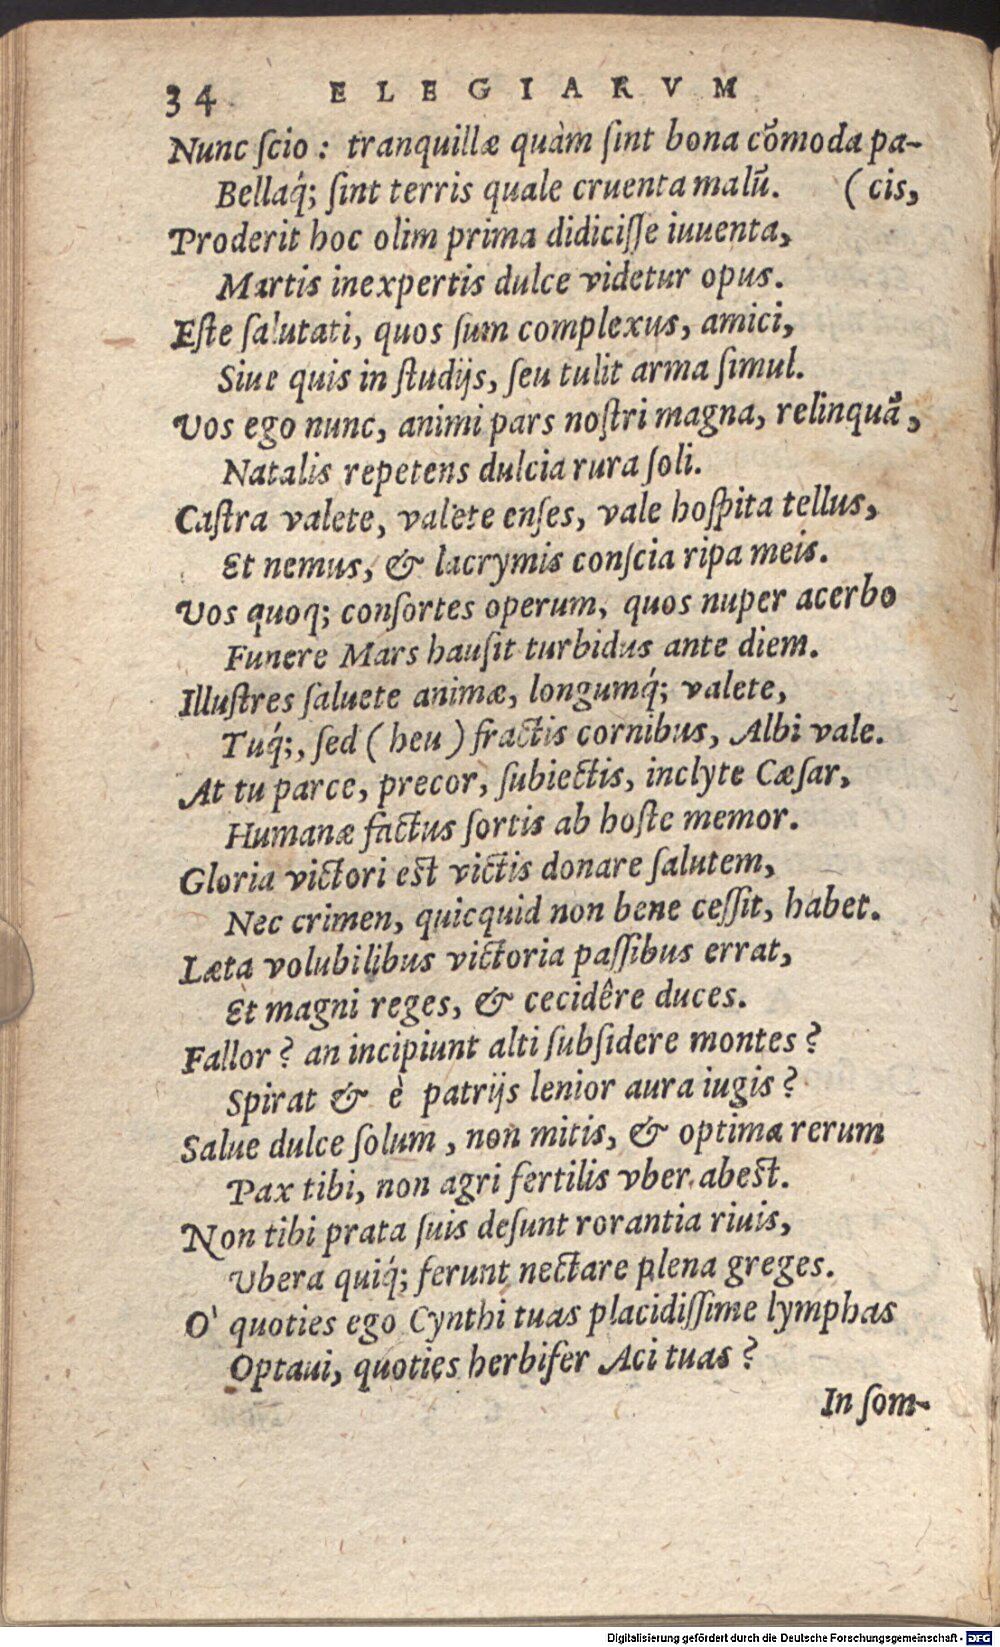 34 ELEGIARVM
Nunc ſcio: tranquillæ quàm ſint bona cōmoda pa-
Bellaq́; ſint terris quale cruenta malū. (cis,
Proderit hoc olim prima didiciſſe iuuenta,
Martis inexpertis dulce videtur opus.
Eſte ſalutati, quos ſum complexus, amici,
Siue quis in ſtudijs, ſeu tulit arma ſimul.
Vos ego nunc, animi pars noſtri magna, relinquā,
Natalis repetens dulcia rura ſoli.
Caſtra valete, valete enſes, vale hoſpita tellus,
Et nemus, & lacrymis conſcia ripa meis.
Vos quoq; conſortes operum, quos nuper acerbo
Funere Mars hauſit turbidus ante diem.
Illuſtres ſaluete animæ, longumq́; valete,
Tuq́;, ſed (heu) fractis cornibus, Albi vale.
At tu parce, precor, ſubiectis, inclyte Cæſar,
Humanæ factus ſortis ab hoſte memor.
Gloria victori est victis donare ſalutem,
Nec crimen, quicquid non bene ceſſit, habet.
Læta volubilibus victoria paſſibus errat,
Et magni reges, & cecidêre duces.
Fallor? an incipiunt alti ſubſidere montes?
Spirat & è patrijs lenior aura iugis?
Salue dulce ſolum, non mitis, & optima rerum
Pax tibi, non agri fertilis vber abest.
Non tibi prata ſuis deſunt rorantia riuis,
Vbera quiq́; ferunt nectare plena greges.
O' quoties ego Cynthi tuas placidiſſime lymphas
Optaui, quoties herbifer Aci tuas?
In ſom-
Digitalisierung gefördert durch die Deutsche Forschungsgemeinschaft - DFG